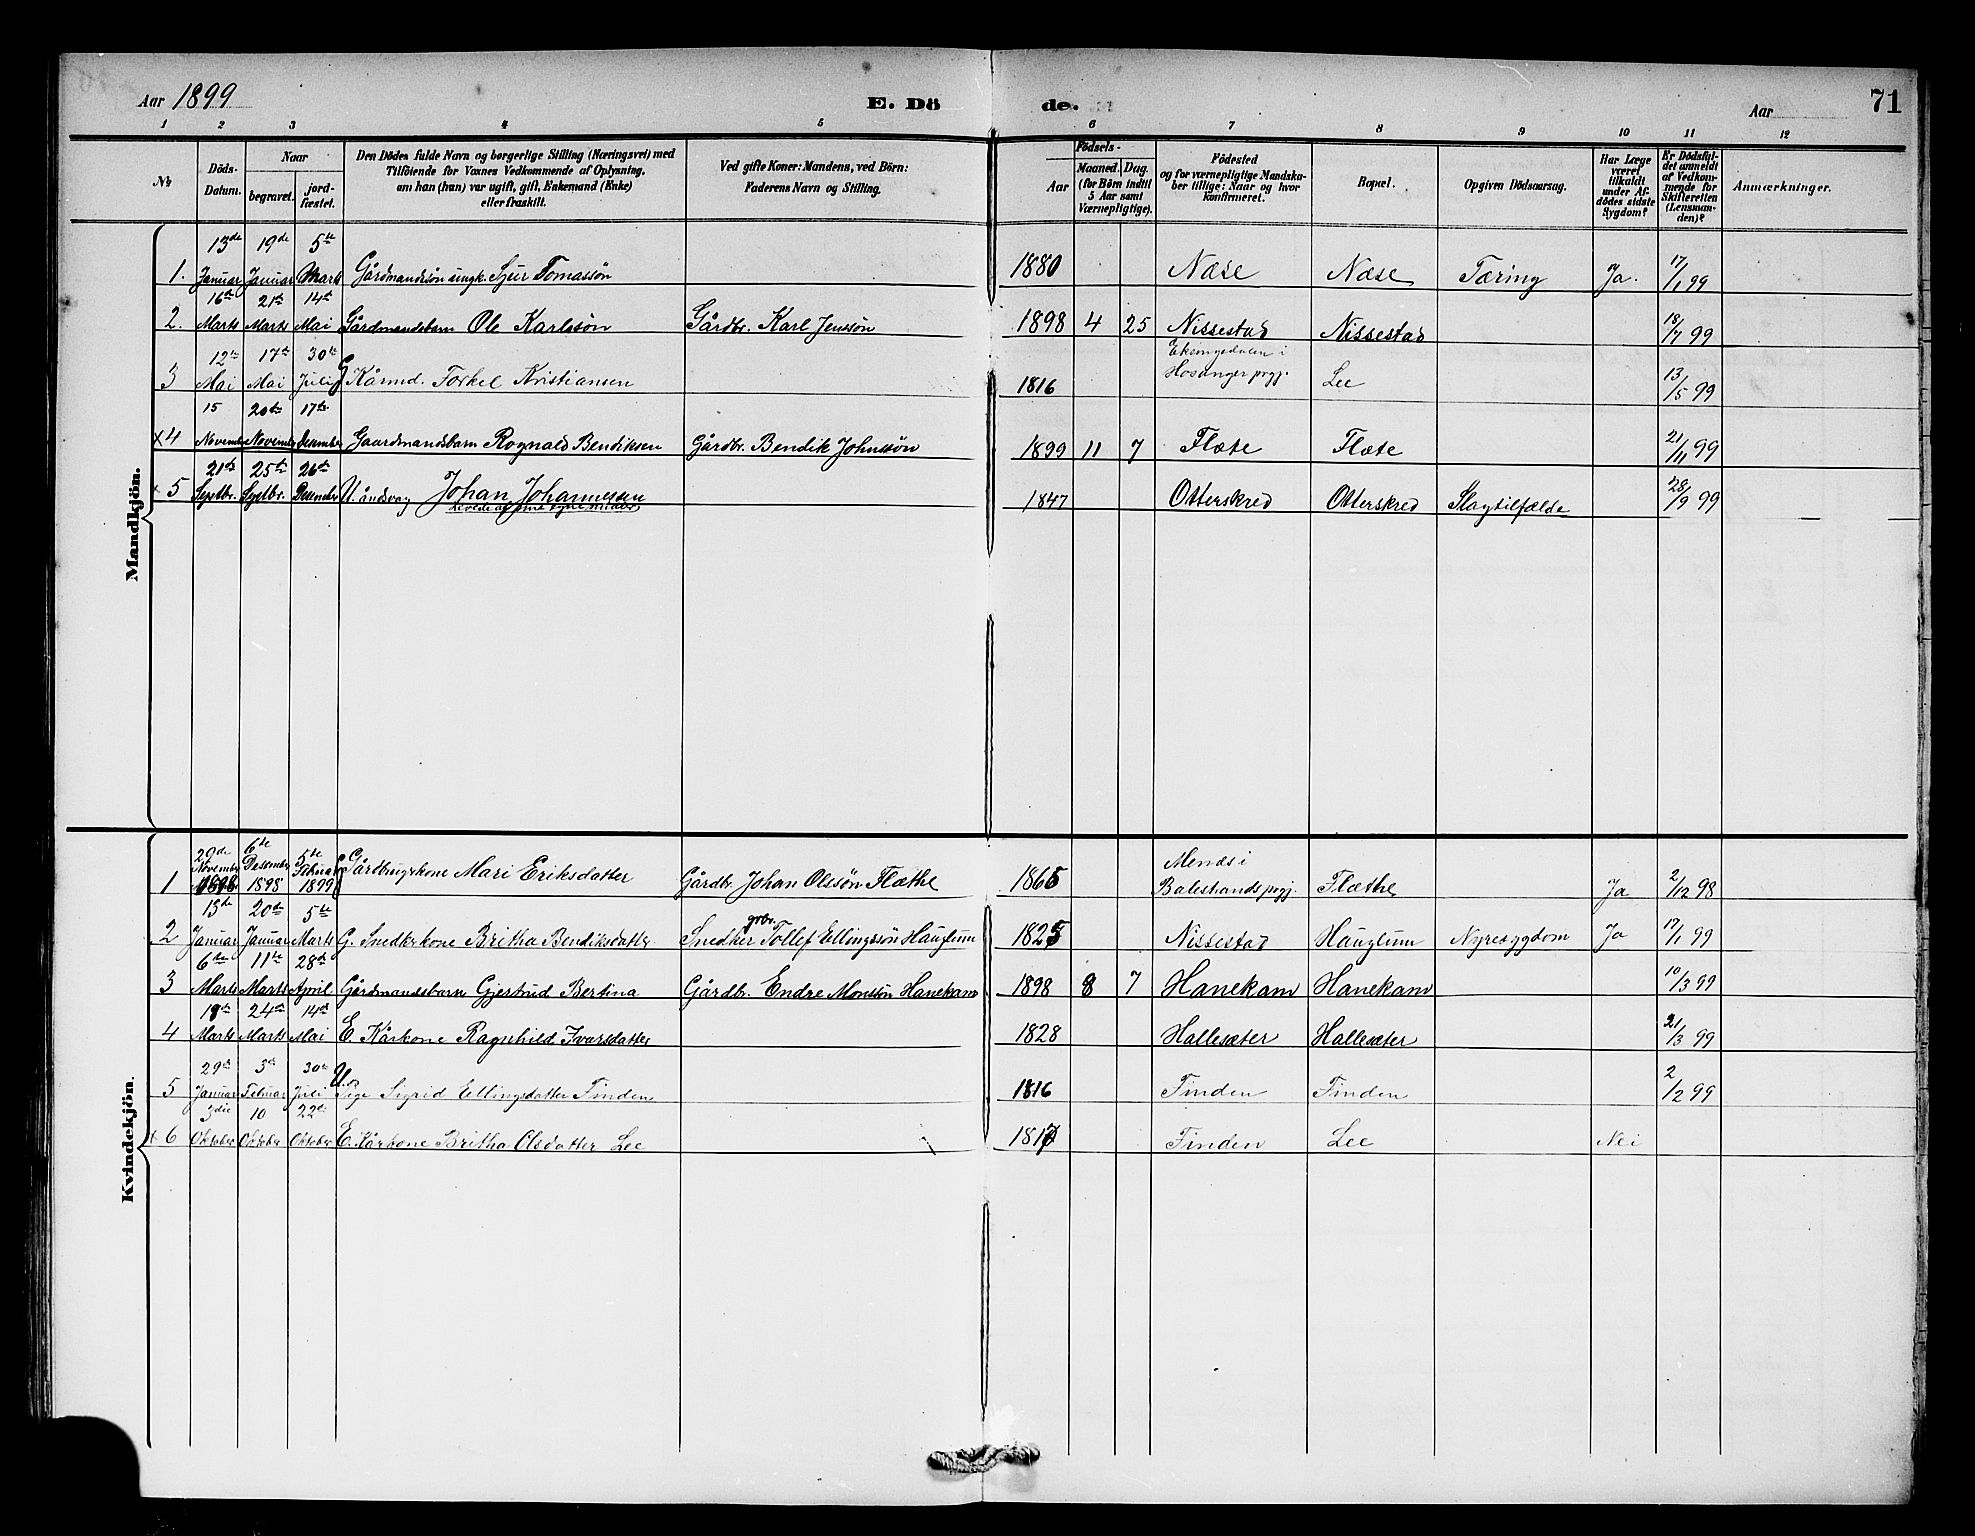 Aar 1899 E. Dö de. Aar 71
1 2 3 4 5 6 7 8 9 10 11 12
№ Döds-Datum. Naar begravet. jordfæstet. Den Dödes fulde Navn og borgerlige Stilling (Næringsvei) med Tilföiende for Voxnes Vedkommende af Oplysning, om han (hun) var ugift, gift, Enkemand (Enke) eller fraskilt. Ved gifte Koner: Mandens, ved Börn: Faderens Navn og Stilling. Födsels- Aar Maaned. Dag. (for Börn indtil 5 Aar samt Værnepligtige). Födested og for værnepligtige Mandskaber tillige: Naar og hvor konfirmeret. Bopæl. Opgiven Dödsaarsag. Har Læge været tilkaldt under Afdödes sidste Sygdom? Er Dödsfaldet anmeldt af Vedkommende for Skifteretten (Lensmanden)? Anmærkninger.
Mandkjön.
1. 13de Januar 19de Januar 5te Marts Gårdmandssön ungk. Sjur Tomassön 1880 Næse Næse Tæring Ja. 17/1 99
2. 16de Marts 21de Marts 14de Mai Gårdmandsbarn Ole Karlssön Gårdbr. Karl Jenssön 1898 4 25 Nissestad Nissestad 99
3 12te Mai 17de Mai 30te Juli G Kårmd. Torkel Kristiansen 1816 Eksingedalen i Hosanger prgj. Lee 13/5 99
x4 15 Novembr 20de Novembr 17de Desember Gaardmandsbarn Rognald Bendiksen Gårdbr. Bendik Johnssön 1899 11 7 Flæte Flæte 21/11 99
x 5 21de Septbr. 25te Septbr. 26de Desember U. åndsvag Johan Johannesen
Levede af sine egne midler 1847 Otterskred Otterskred Slagtilfælde 28/9 99
Kvindekjön.
1 29de Novembr 1898 6te Desembr 1898 5te Febuar 1899 Gårdbrugrkone Mari Eriksdatter Gårdbr. Johan Olssön Flæthe 1865 Menæs i Balestrands prgj. Flæthe Ja 2/12 98
2 13de Januar 20de Januar 5te Marts G. Snedkrkone Britha Bendiksdattr Snedker grbr. Tollef Ellingssön Hauglum 1825 Nissestad Hauglum Nyresygdom Ja 17/1 99
3 6te Marts 11te Marts 28de April Gårdmandsbarn Gjertrud Bertina Gårdbr. Endre Monssön Hanekam 1898 8 7 Hanekam Hanekam 10/3 99
4 18de Marts 24de Marts 14de Mai E. Kårkone Ragnhild Ivarsdatter 1828 Hallesæter Hallesæter 21/3 99
5 29de Januar 3de Febuar 30te Juli U. Pige Sigrid Ellingsdatter Finden 1816 Finden Finden 2/2 99
x 6 3die Oktober 10 Oktober 22de Oktober E. Kårkone Britha Olsdatter Lee 1817 Finden Lee Nei